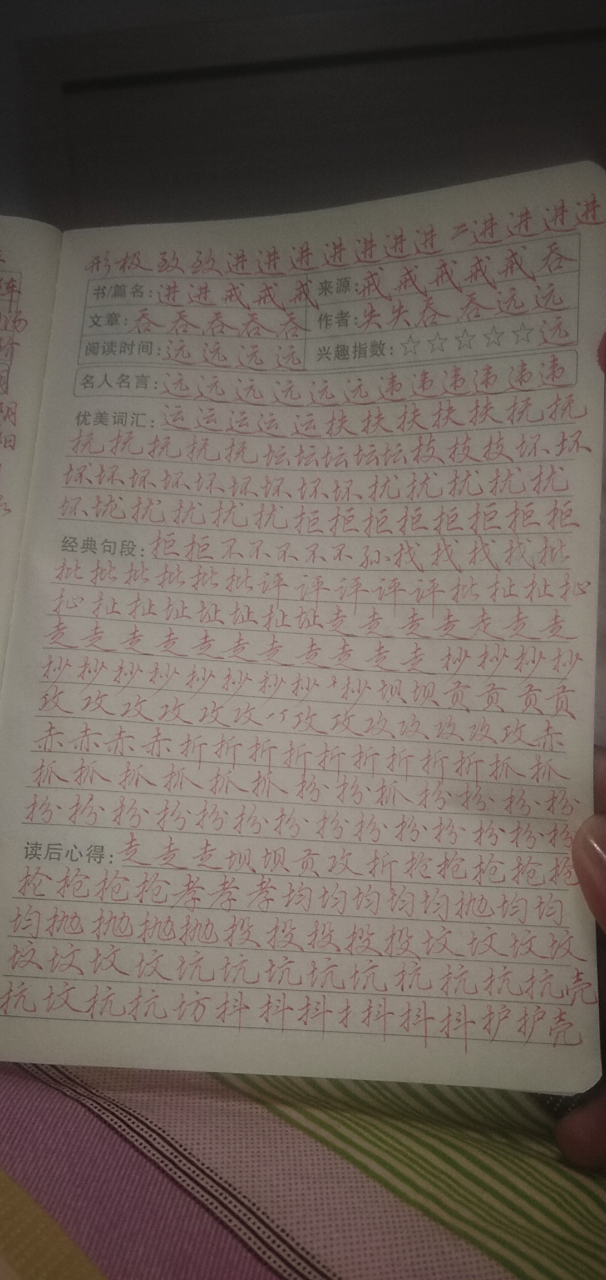 形极致致进进进进进进进二进进进进
书/篇名:进进戒戒戒 来源:戒戒戒戒戒吞
文章:吞吞吞吞吞 作者:失失吞吞远远
阅读时间:远远远远 兴趣指数:☆☆☆☆☆远
名人名言:远远远远远远违违违违违违
优美词汇:运运运运运扶扶扶扶扶抚抚
抚抚抚抚抚坛坛坛坛坛技技技坏坏
坏坏坏坏坏坏坏坏坏扰扰扰扰扰
坏垅扰扰扰扰拒拒拒拒拒拒拒拒拒
经典句段:拒拒不不不不不孙找找找找找批
批批批批批批评评评评评批扯扯扯
扯扯址址址址址走走走走走走走
走走走走走走走走走走走抄抄抄抄
抄抄抄抄抄抄抄抄抄坝坝贡贡贡贡
攻攻攻攻攻攻攻攻攻攻攻攻攻攻赤
赤赤赤赤折折折折折折折折折抓抓
抓抓抓抓抓抓扮扮抓扮扮扮扮
扮扮扮扮扮扮扮扮扮扮扮扮扮扮
读后心得:走走走坝坝贡攻折抢抢抢抢
抢抢抢抢孝孝孝均均均均均抛均均
均抛抛抛抛投投投投投坟坟坟坟
坟坟坟坟坑坑坑坑坑抗抗抗抗壳
抗坟抗抗坊抖抖抖抖抖抖护护壳